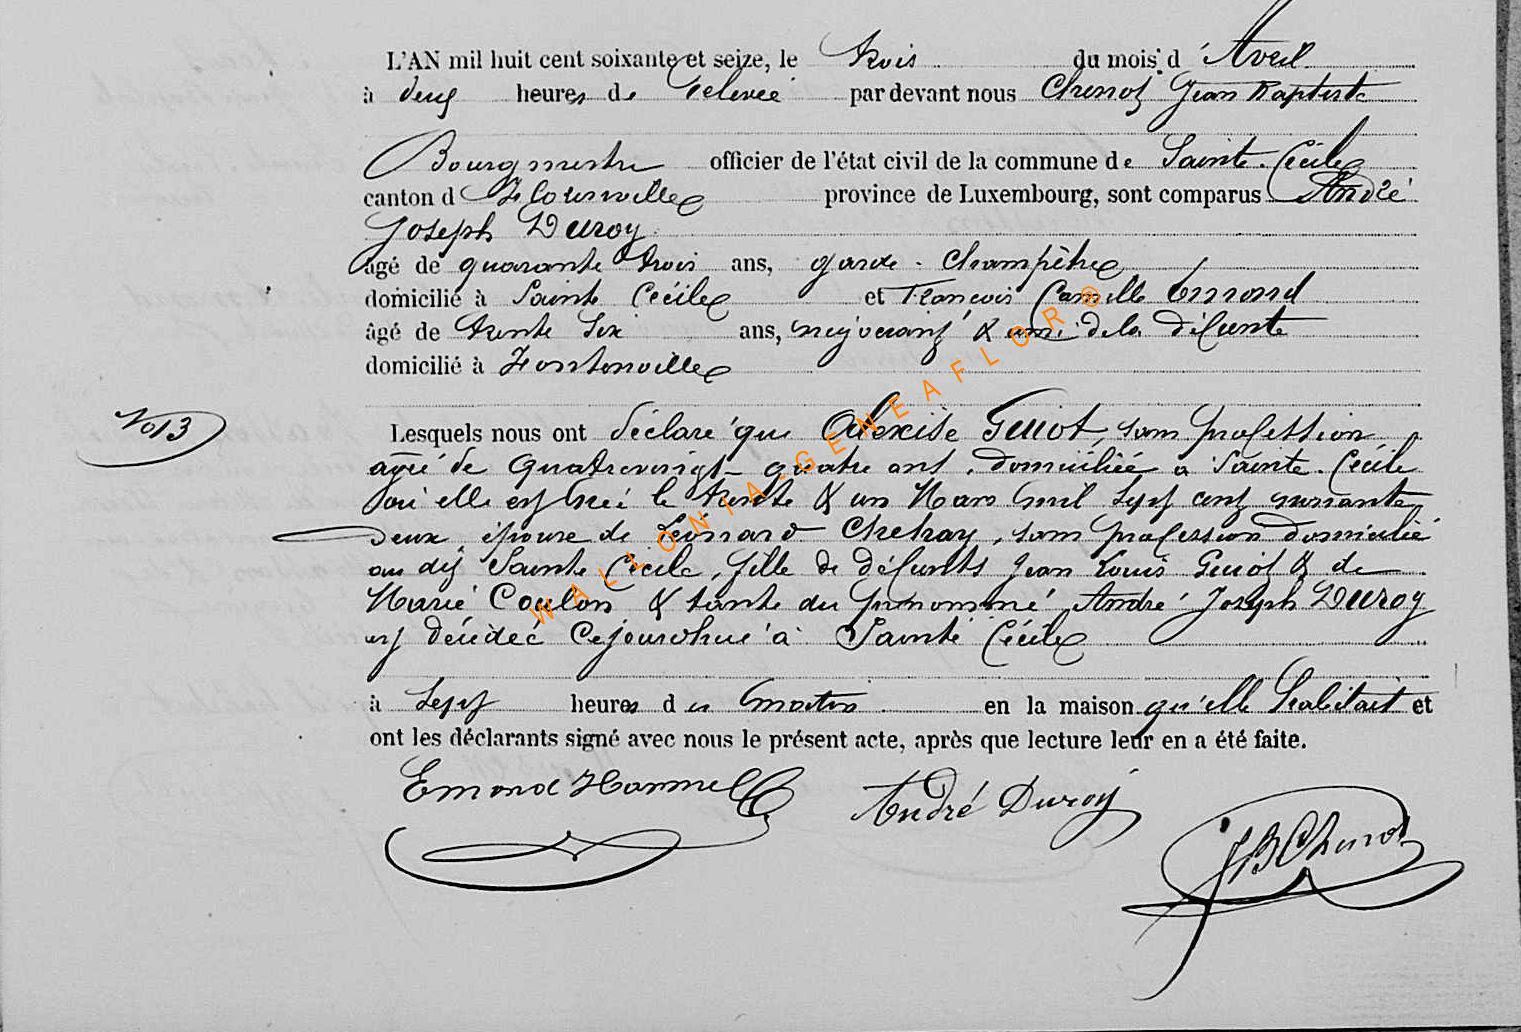 L'AN mil huit cent soixante et seize, le trois du mois d'Avril
à deux heures de relevée par devant nous Chenot Jean Baptiste
Bourgmestre officier de l'état civil de la commune de Sainte-Cécile
canton de Florenville province de Luxembourg, sont comparus André
Joseph Duroy
âgé de quarante trois ans, garde-Champêtre
domicilié à Sainte Cécile et François Camille Emond
âgé de trente six ans, négociant & ami de la défunte
domicilié à Fontenoille
No 13
Lesquels nous ont déclaré que Alexise Guiot, sans profession
agée de quatrevingt-quatre ans, domiciliée à Sainte-Cécile
où elle est née le trente & un Mars mil sept cent nonante
deux épouse de Léonard Chehay, sans profession domicilié
au dit Sainte Cécile, fille de défunts Jean Louis Guiot & de
Marie Coulon & tante du prénommé André Joseph Duroy
est décédée cejourdhui à Sainte Cécile
à sept heures du matin en la maison qu'elle habitait et
ont les déclarants signé avec nous le présent acte, après que lecture leur en a été faite.
Emond André Duroy
JB Chenot
WALLONIA-GENEAFLOR®